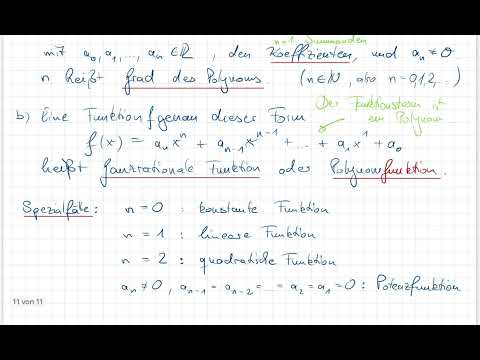 n+1 Summanden
mit a₀, a₁, ..., aₙ ∈ ℝ, den Koeffizienten, und aₙ ≠ 0
n heißt Grad des Polynoms. (n ∈ ℕ, also n = 0,1,2,...)
Der Funktionsterm ist
ein Polynom
b) Eine Funktion f genau dieser Form
f(x) = aₙxⁿ + aₙ₋₁xⁿ⁻¹ + ... + a₁x¹ + a₀
heißt ganzrationale Funktion oder Polynomfunktion.
Spezialfälle: n = 0 : konstante Funktion
n = 1 : lineare Funktion
n = 2 : quadratische Funktion
aₙ ≠ 0, aₙ₋₁ = aₙ₋₂ = ... = a₂ = a₁ = 0 : Potenzfunktion
11 von 11